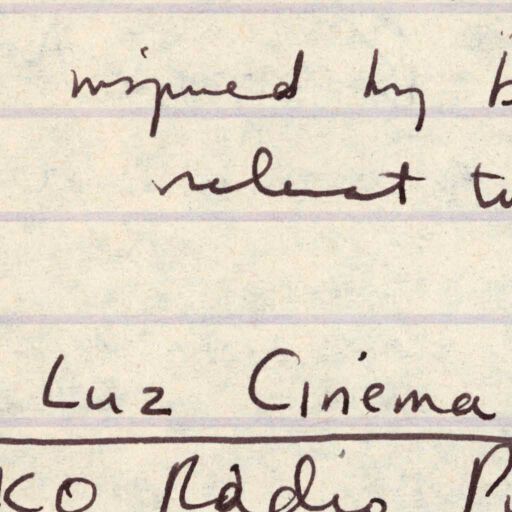 inspired by
relevant to
Luz Cinema
KO Radio